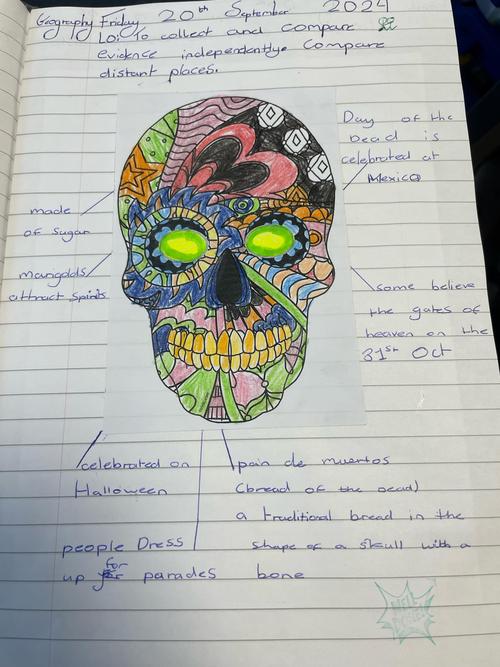 Geography Friday 20th September 2024
LO: To collect and compare
evidence independently. Compare
distant places.
Day of the
Dead is
celebrated at
Mexico
made
of sugar
marigolds
attract spirits
some believe
the gates of
heaven on the
31st Oct
celebrated on
Halloween
people Dress
up for parades
pan de muertos
(bread of the Dead)
a traditional bread in the
shape of a skull with a
bone
WELL